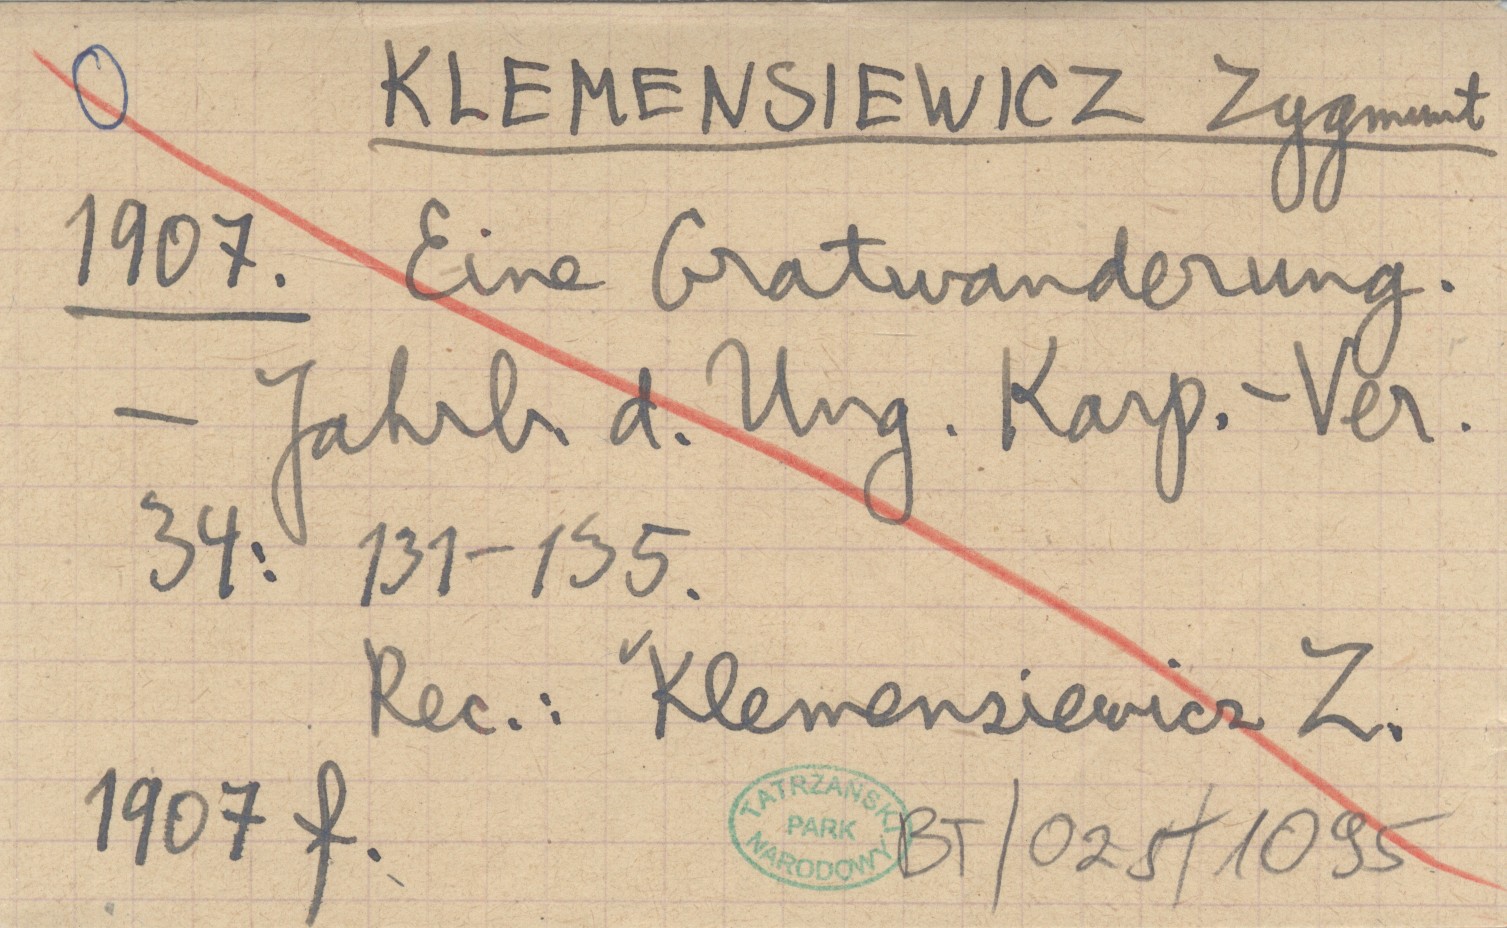 KLEMENSIEWICZ Zygmunt
1907. Eine Gratwanderung.
– Jahrb. d. Ung. Karp.-Ver.
34: 131–135.
Rec.: Klemensiewicz Z.
1907 f.
TATRZAŃSKI
PARK
NARODOWY
BT/025/1095